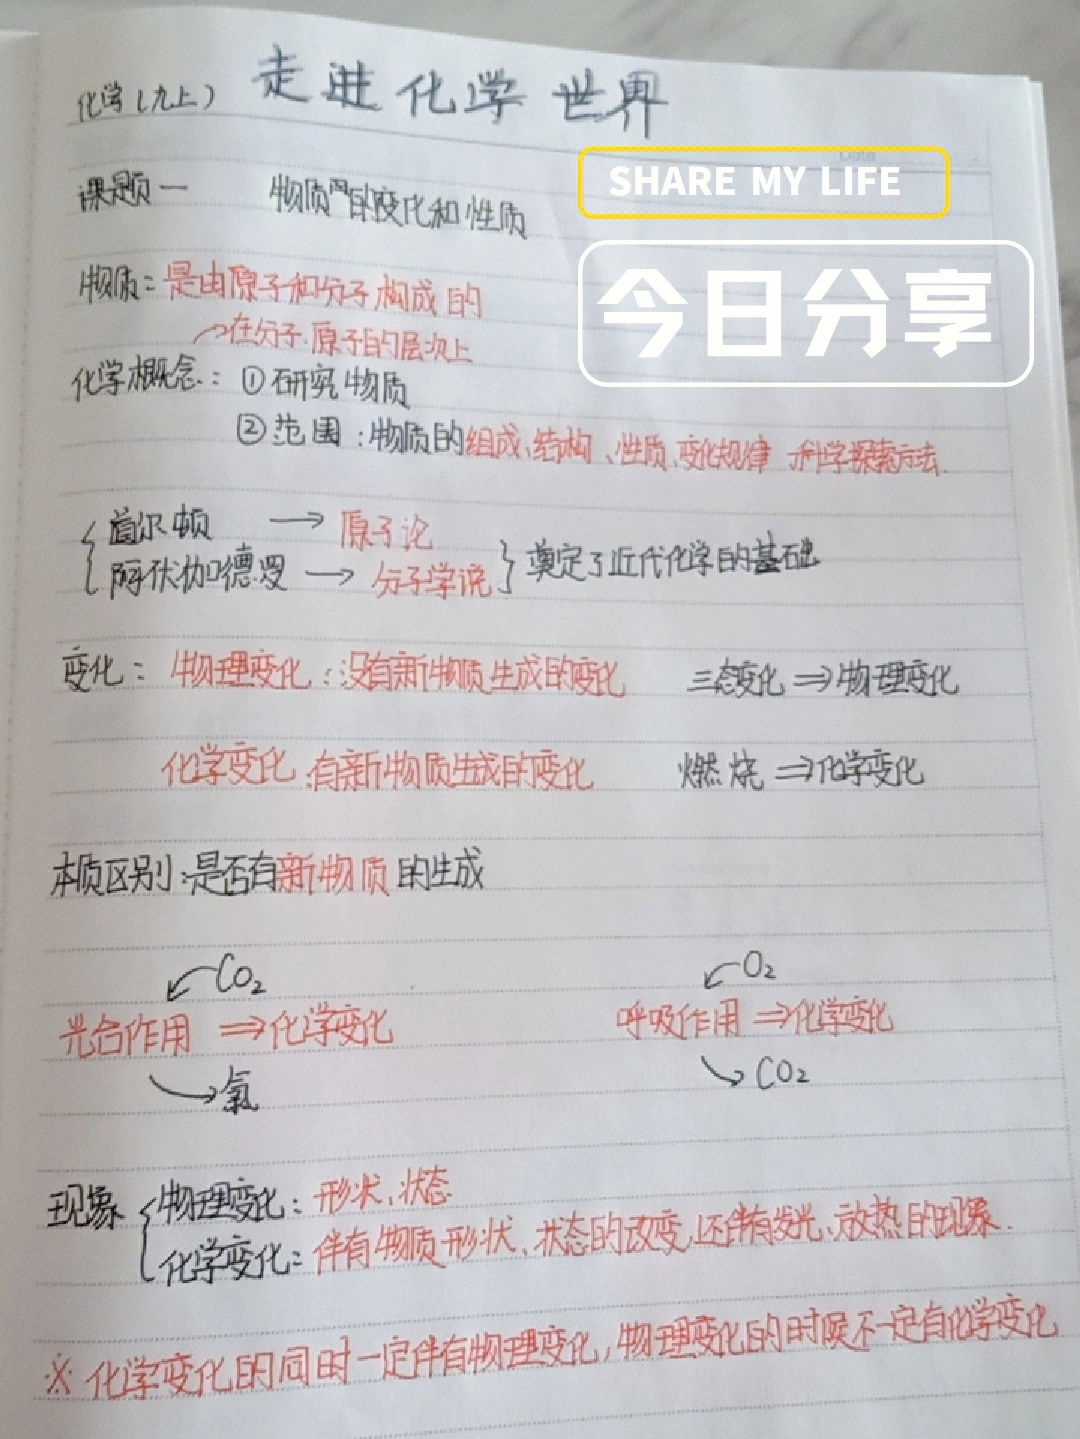 化学(九上) 走进化学世界
Date
SHARE MY LIFE
课题一 物质的变化和性质
今日分享
物质：是由原子和分子构成的
→在分子.原子的层次上
化学概念：①研究物质
②范围：物质的组成、结构、性质、变化规律 科学探索方法.
{道尔顿 → 原子论
阿伏伽德罗 → 分子学说} 奠定了近代化学的基础
变化：物理变化：没有新物质生成的变化 三态变化⇒物理变化
化学变化：有新物质生成的变化 燃烧⇒化学变化
本质区别：是否有新物质的生成
CO₂ O₂
光合作用⇒化学变化 呼吸作用⇒化学变化
氧 CO₂
现象{物理变化：形状、状态.
化学变化：伴有物质形状、状态的改变,还伴有发光、放热的现象.
※化学变化的同时一定伴有物理变化,物理变化的时候不一定有化学变化